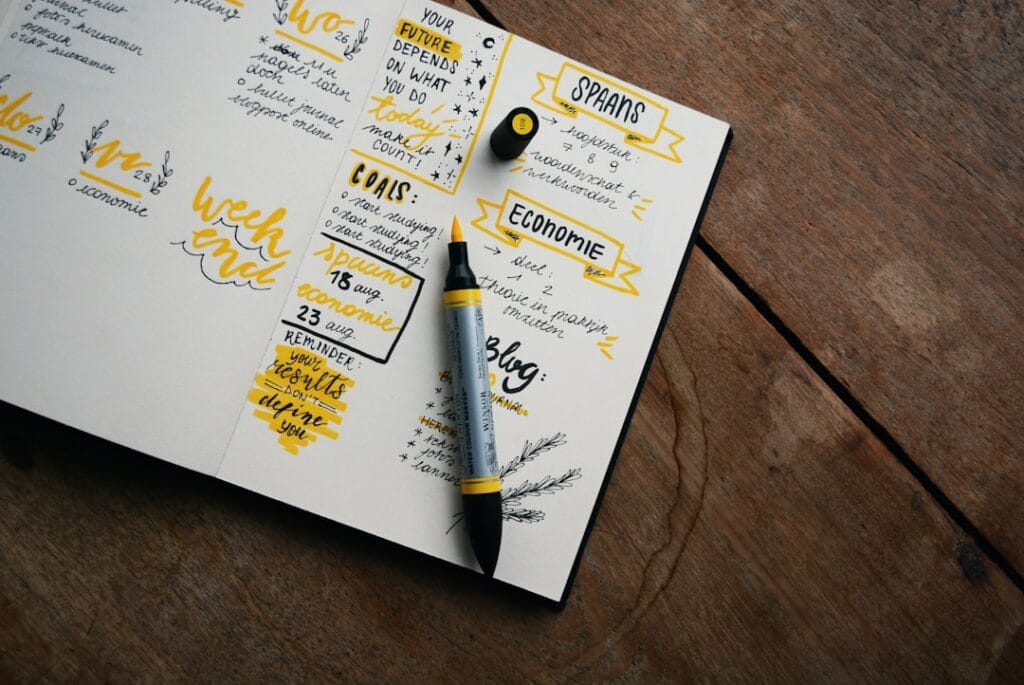 o foto's herexamen
herexamen
Wo 26
* nagels laten
doen
o bullet journal
blogpost online
27
vr 28
o economie
week
end
YOUR
FUTURE
DEPENDS
ON WHAT
YOU DO
today
make it
COUNT!
GOALS:
o start studying!
o start studying!
o start studying!
spaans
18 aug.
economie
23 aug.
REMINDER:
your
results
DON'T
define
you
SPAANS
→ hoofdstuk:
7 8 9
woordenschat &
werkwoorden
ECONOMIE
→ deel:
1 2
theorie in praktijk
omzetten
Blog:
WINSOR